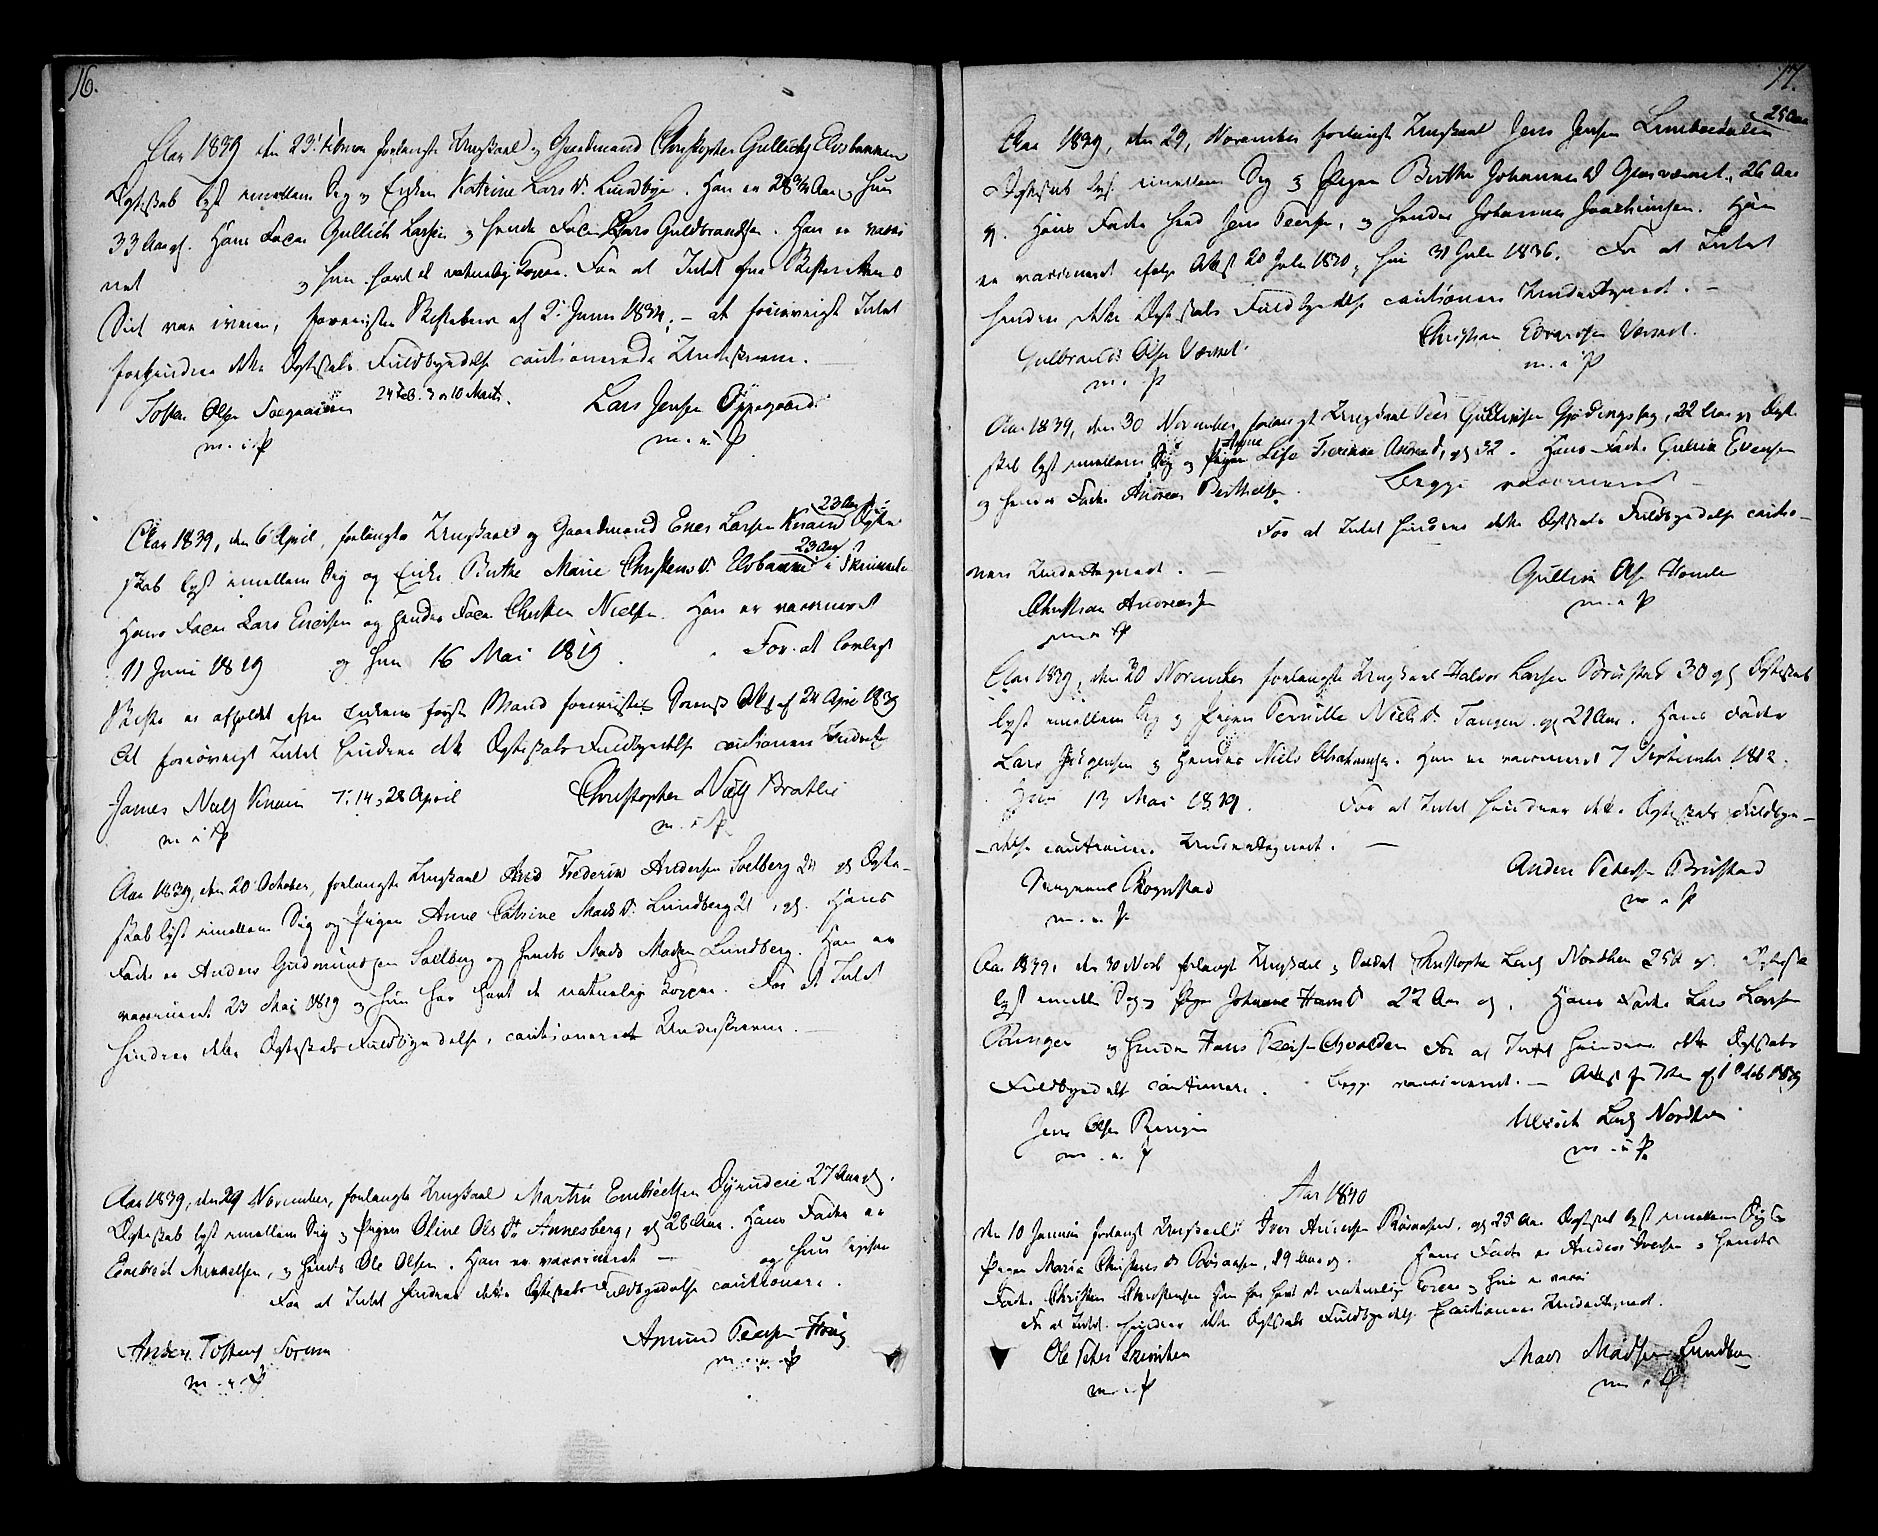 16.
Aar 1839 den 23. Februar forlangte Ungkarl og Gaardmand Christopher Gullichs Elvebakken
Ægteskab lyst imellem Sig og Enken Katrine Lars D. Lundbye. Han er 28 3/4 Aar og hun
33 Aar gl. Hans Fader Gullich Larsen og hendes Fader Lars Guldbrandsen. Han er vacci
neret og hun havt de naturlige Kopper. For at Intet fra Skiftets
Side var iveien, forevistes Skiftebrev af 2 Juni 1834; — at forøvrigt Intet
forhindrer dette Ægteskabs Fuldbyrdelse cautionerede Underskrevne.
24 Feb. 3 og 10 Marts.
Tosten Olsen
m. i. P
Lars Jensen Oppegaard
m. i. P
23 Aar gl.
Aar 1839, den 6 April, forlangte Ungkarl og Gaardmand Ener Larsen Knain Ægte
23 Aar
skab lyst imellem Sig og Enke Berthe Marie Christens D. Elvebakken i
Hans Fader Lars Enersen og hendes Fader Christen Nielsen. Han er vaccineret
11 Juni 1819 og hun 16 Mai 1819. For at lovligt
Skifte er afholdt efter Enkens første Mand forevistes Attest af 24 April 1839
At forøvrigt Intet hindrer dette Ægteskabs Fuldbyrdelse cautionerer
James Niels Knain 7. 14 og 28 April
m i P
Christopher Niels Bratlie
m. i P
Aar 1839, den 20 October, forlangte Ungkarl Frederik Andersen Solberg gl. Ægte-
skab lyst imellem Sig og Pigen Anne Catrine Mads D. Lundberg 21, gl. Hans
Fader er Anders Gudmundsen Solberg og hendes Mads Madsen Lundberg. Han er
vaccineret 23 Mai 1819 og hun har havt de naturlige Kopper. For at Intet
hindrer dette Ægteskabs Fuldbyrdelse, cautionerede Underskrevne.
Aar 1839, den 29 November, forlangte Ungkarl Martin Embretsen 27 Aar gl.
Ægteskab lyst imellem Sig og Pigen Oline Ols D. Annesberg, gl. 28 Aar. Hans Fader er
Embret Mikkelsen, og hendes Ole Olsen. Han er vaccineret — og hun ligesaa
For at Intet hindrer dette Ægteskabs Fuldbyrdelse cautionerer.
Anders Tostens Sorum
m. i. P
Amund Peersen
m. i. P
17.
25 Aar
Aar 1839, den 29, November forlangte Ungkarl Jens Jensen
Ægteskab lyst imellem Sig og Pigen Berthe Johannes D Glasværket, 26 Aar
gl. Hans Fader hed Jens Peersen, og hendes Johannes Joachimsen. Han
er vaccineret ifølge Attest 20 Juli 1830, hun 31 Juli 1836. For at Intet
hindrer dette Ægteskabs Fuldbyrdelse cautionerer Undertegnede. —
Gulbrand Olsen Værket.
m. i. P
Christian Evensen Værket.
m. i P
Aar 1839, den 30 November, forlangte Ungkarl Peer Gulliksen 22 Aar gl. Ægte-
skab lyst imellem Sig og Pigen Lise Andreas D, gl. 32. Hans Fader Gullik Evensen
og hendes Fader Andreas Berthelsen. Begge vaccinerede —
For at Intet hindrer dette Ægteskabs Fuldbyrdelse cautio-
nere Undertegnede. —
Christian Andreassen
m. i P
Gullik Olsen
m. i P
Aar 1839, den 30 November forlangte Ungkarl Halvor Larsen Brustad 30 gl. Ægteskab
lyst imellem Sig og Pigen Pernille Niels D. Tangen gl. 21 Aar. Hans Fader
Lars Jørgensen og hendes Niels Abrahamsen. Han er vaccineret 7 September 1812.
Hun 13 Mai 1819. For at Intet hindrer dette Ægteskabs Fuldbyr-
-delse cautionere Undertegnede. —
Rognstad
m. i. P
Anders Petersen Brustad
m. i P
Aar 1839. den 30 Novb forlangte Ungkarl og Soldat Christopher Lars Nordbye 25 A gl. Ægteskab
lyst imellem Sig og Pigen Johanne Hans D. 22 Aar gl. Hans Fader Lars Larsen
Ringer og hendes Hans Peersen For at Intet hindrer dette Ægteskabs
Fuldbyrdelse cautionere. Begge vaccinerede. — Attest
Jens Olsen Ringer
m. i. P
Ulrich Lars Nordbye.
m. i. P
Aar 1840
Den 10 Januar forlangte Ungkarl Iver Andersen gl. 25 Aar Ægteskab lyst imellem Sig og
Pigen Maria Christens D 29 Aar gl. Hans Fader er Anders Iversen og hendes
Fader Christen Christensen han har havt de naturlige Kopper og hun er vacci
For at Intet hindrer dette Ægteskabs Fuldbyrdelse cautionerer Undertegnede.
Ole Peter
m. i P
Mads Madsen Lundberg
m. i P